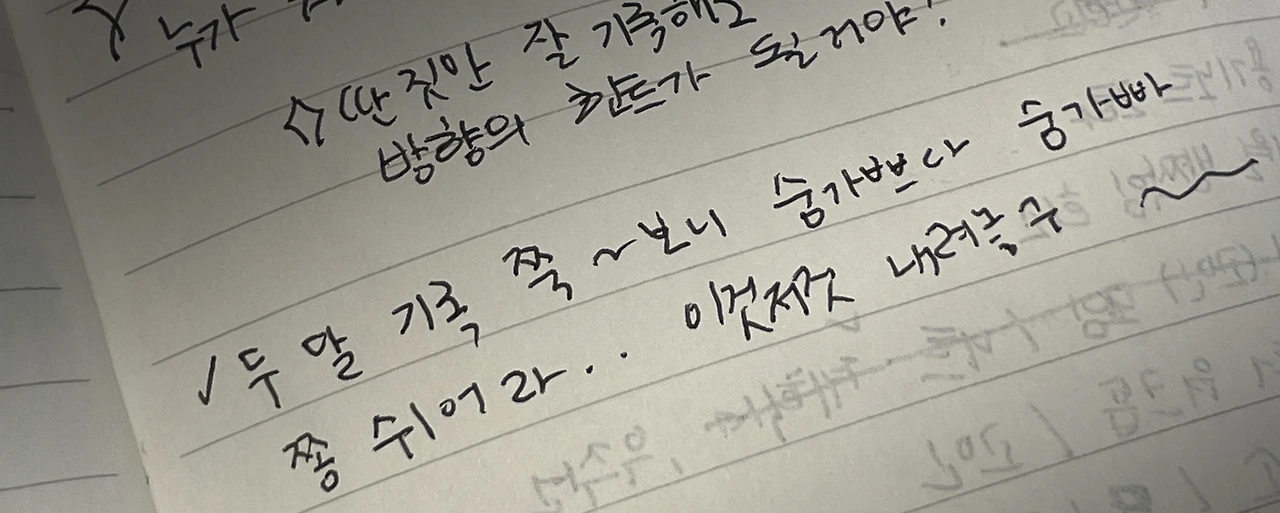 누가
☆ 딴짓만 잘 기록해도
방향의 힌트가 될거야!
✓ 두 달 기록 쭉~보니 숨가쁘다 숨가빠
쫌 쉬어라.. 이것저것 내려놓구 ~